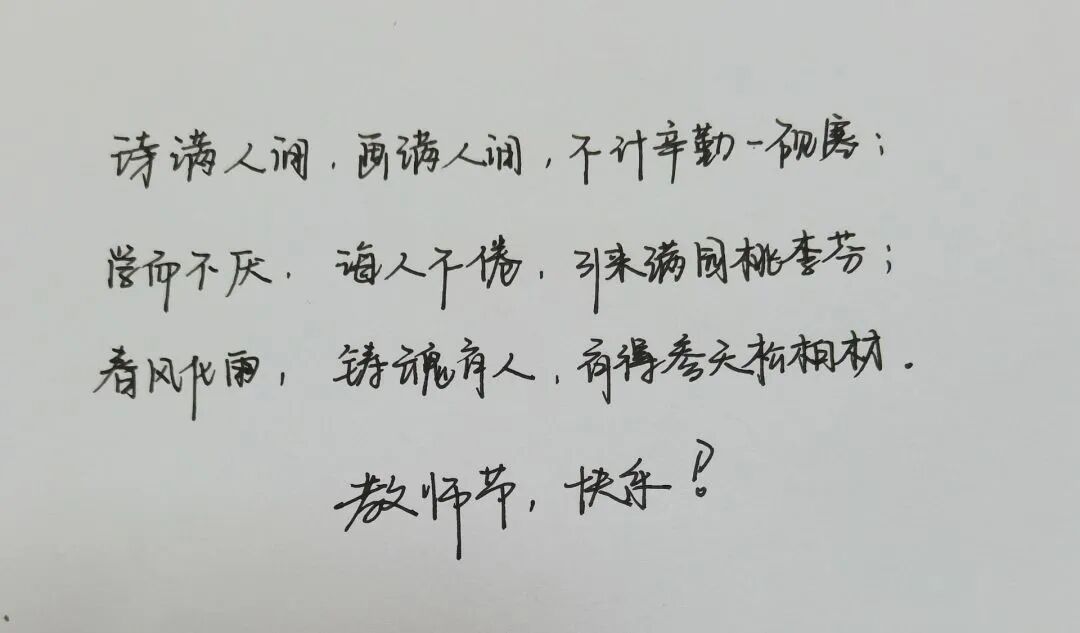 诗满人间，画满人间，不计辛勤一砚寒；
学而不厌，诲人不倦，引来满园桃李芬；
春风化雨，铸魂育人，育得参天松柏材。
教师节，快乐！